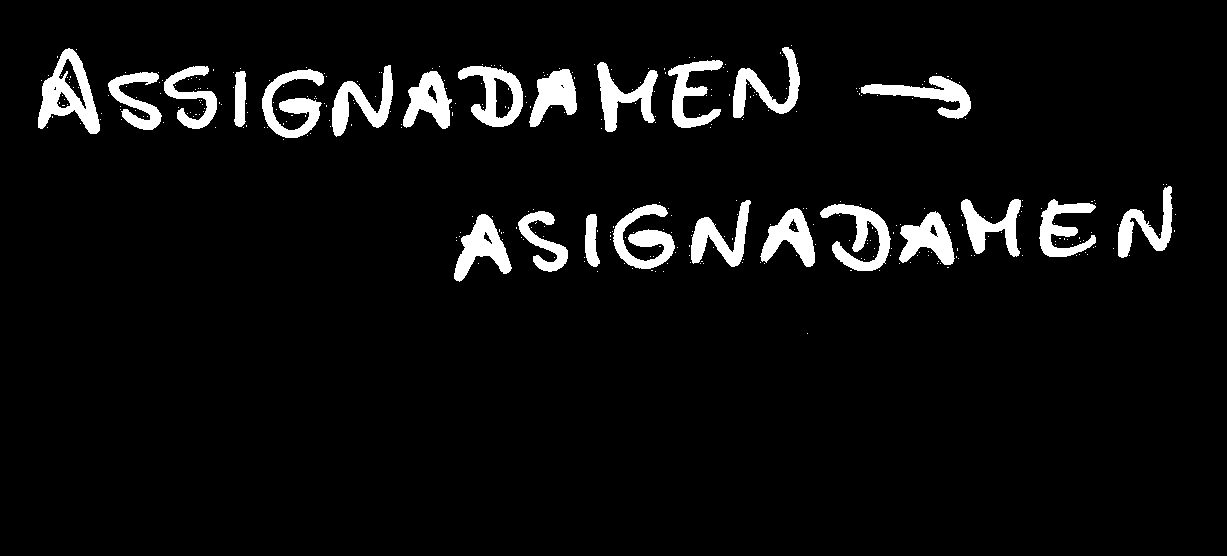 ASSIGNADAMEN →
ASIGNADAMEN